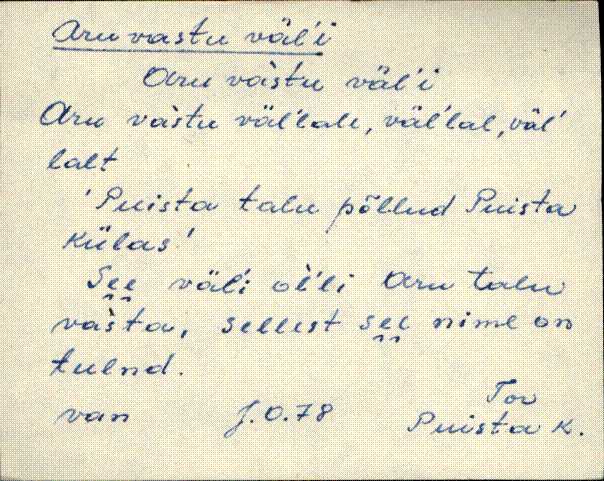 Aru vastu väl'i
Aru vàstu väl'i
Aru vàstu väl'lale, väl'lal, väl'
lalt
'Puista talu põllud Puista
külas'
See väl'i òl'li Aru talu
vàsta, sellest see nime on
tulnd.
van J.O.78 Tor
Puista k.